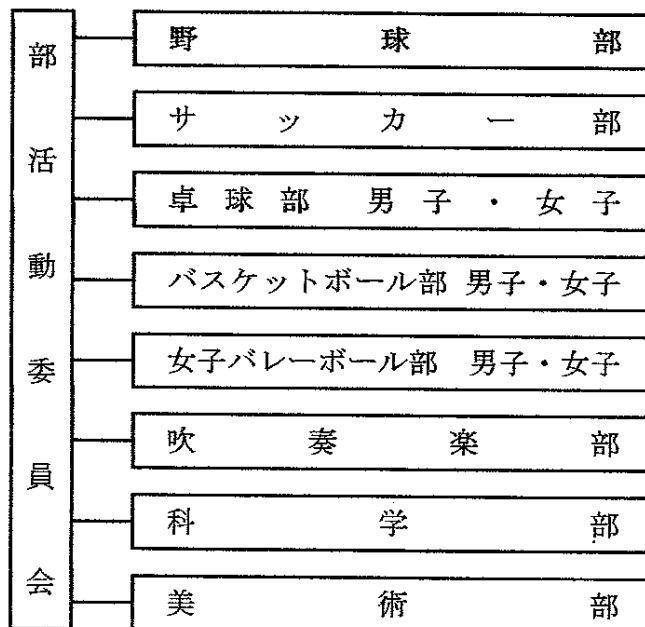 部活動委員会
野球部
サッカー部
卓球部 男子・女子
バスケットボール部 男子・女子
女子バレーボール部 男子・女子
吹奏楽部
科学部
美術部